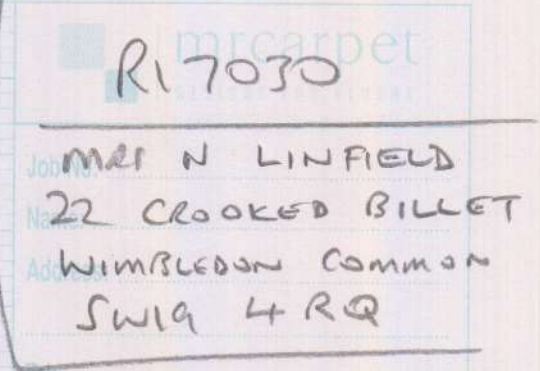 mrcarpet
R17030
Job No:
MRS N LINFIELD
Name:
22 CROOKED BILLET
Address:
WIMBLEDON COMMON
SW19 4RQ